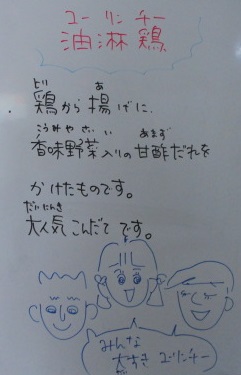 ユーリンチー
油淋鶏
とり あ
鶏から揚げに、
こうみやさい い あまず
香味野菜入りの甘酢だれを
かけたものです。
だいにんき
大人気こんだてです。
みんな
大すき ユーリンチー
だい